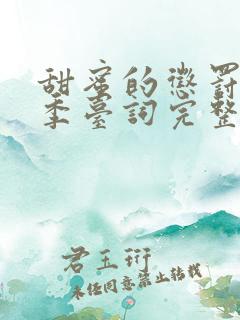 甜蜜的懲罰
季臺詞完整
君玉珩
未经同意禁止转载